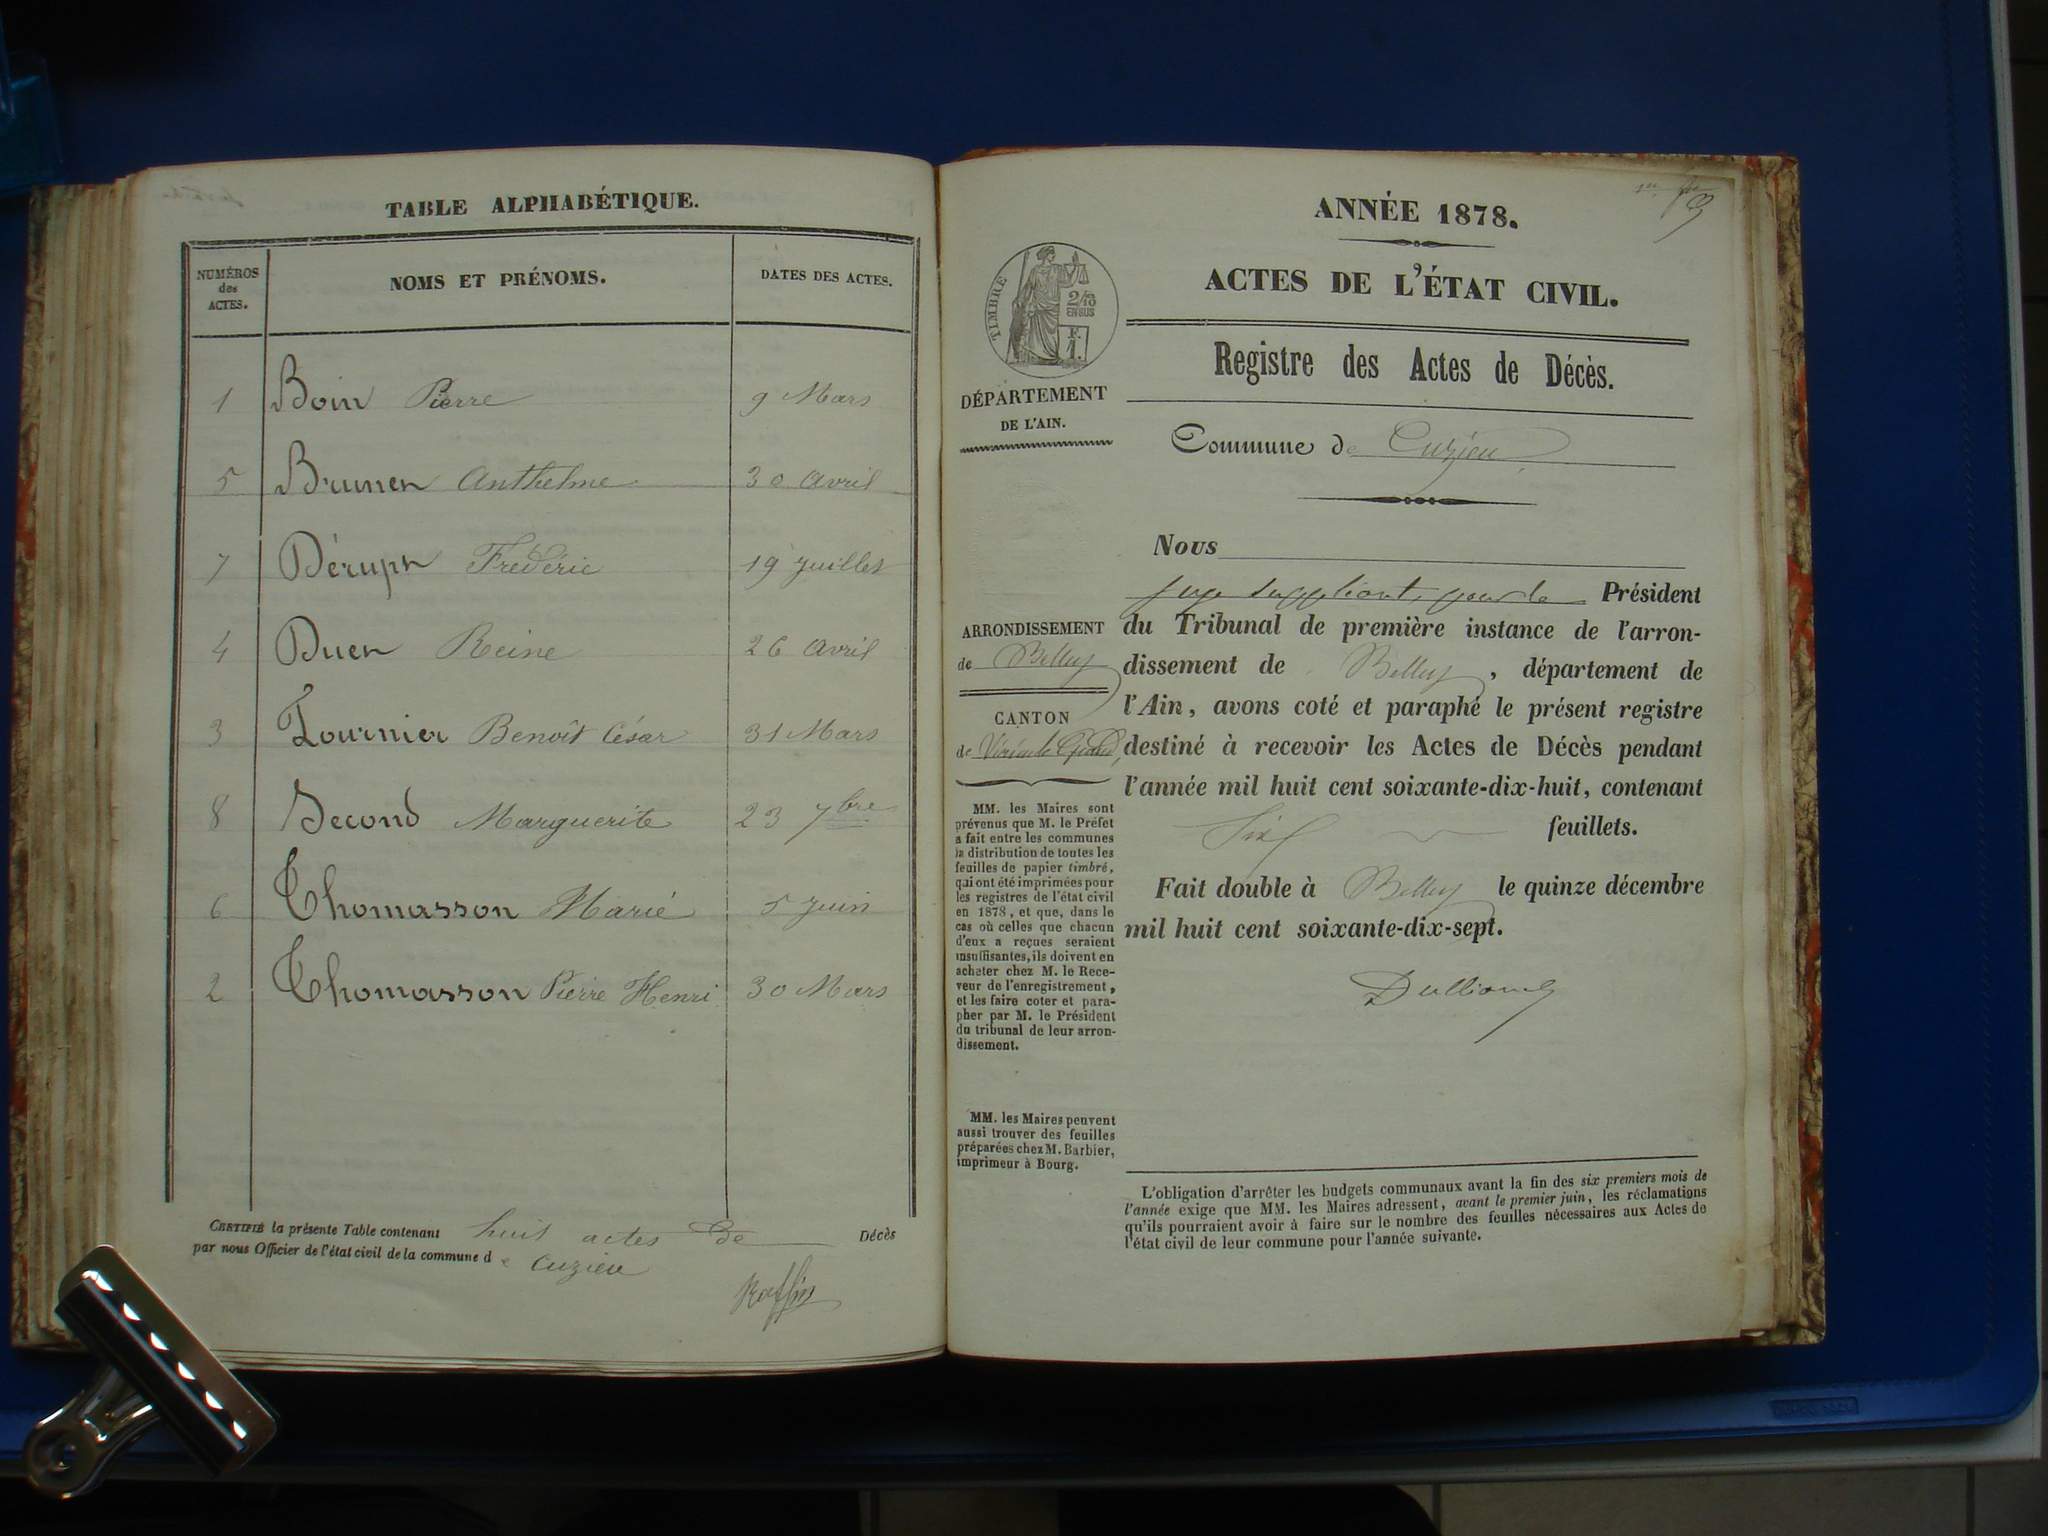 TABLE ALPHABÉTIQUE.
NUMÉROS des ACTES. NOMS ET PRÉNOMS. DATES DES ACTES.
1 Boin Pierre 9 Mars
5 Brunen Anthelme 30 avril
7 Déruph Frédéric 19 juillet
4 Duen Reine 26 avril
3 Fournier Benoît César 31 Mars
8 Second Marguerite 23 7bre
6 Thomasson Marie 5 juin
2 Thomasson Pierre Henri 30 Mars
CERTIFIÉ la présente Table contenant huit actes de Décès
par nous Officier de l'état civil de la commune de cuzieu
Raffin
ANNÉE 1878.
ACTES DE L'ÉTAT CIVIL.
Registre des Actes de Décès.
Commune de Cuzieu
TIMBRE
2/10
EN SUS
F.
1.
DÉPARTEMENT
DE L'AIN.
ARRONDISSEMENT
de Belley
CANTON
de Virieu le Grand,
MM. les Maires sont
prévenus que M. le Préfet
a fait entre les communes
la distribution de toutes les
feuilles de papier timbré,
qui ont été imprimées pour
les registres de l'état civil
en 1878, et que, dans le
cas où celles que chacun
d'eux a reçues seraient
insuffisantes, ils doivent en
acheter chez M. le Rece-
veur de l'enregistrement,
et les faire coter et para-
pher par M. le Président
du tribunal de leur arron-
dissement.
MM. les Maires peuvent
aussi trouver des feuilles
préparées chez M. Barbier,
imprimeur à Bourg.
Nous
juge suppléant, pour le Président
du Tribunal de première instance de l'arron-
dissement de Belley, département de
l'Ain, avons coté et paraphé le présent registre
destiné à recevoir les Actes de Décès pendant
l'année mil huit cent soixante-dix-huit, contenant
Six feuillets.
Fait double à Belley le quinze décembre
mil huit cent soixante-dix-sept.
L'obligation d'arrêter les budgets communaux avant la fin des six premiers mois de
l'année exige que MM. les Maires adressent, avant le premier juin, les réclamations
qu'ils pourraient avoir à faire sur le nombre des feuilles nécessaires aux Actes de
l'état civil de leur commune pour l'année suivante.